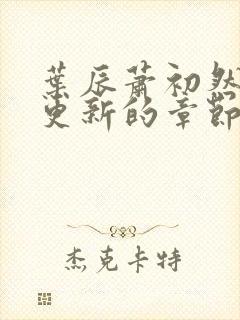 葉辰蕭初然
更新的章節
杰克卡特